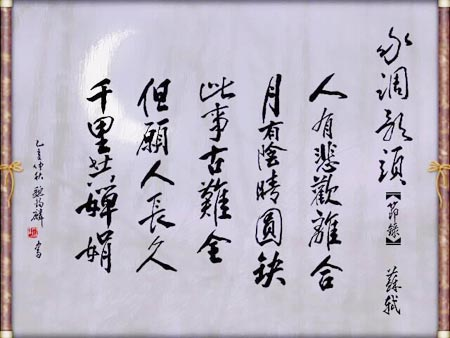 水調歌頭【節錄】 蘇軾
人有悲歡離合
月有陰晴圓缺
此事古難全
但願人長久
千里共嬋娟
乙亥仲秋 書